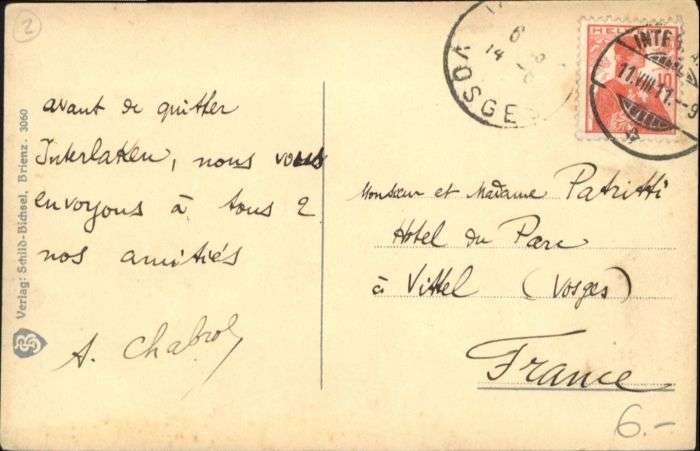 2
avant de quitter
Interlaken, nous vous
envoyons à tous 2
nos amitiés
A. Chabrol
Verlag: Schild-Bichsel, Brienz. 3060
SB
6
14
VOSGES
HELVETIA
10
INTERLAKEN
11.VIII.11.-9
Monsieur et Madame Patritti
Hotel du Parc
à Vittel (Vosges)
France
6.-